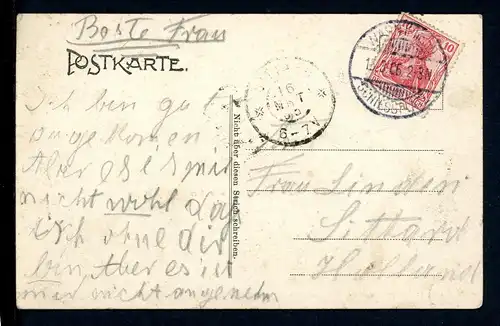 Beste Frau
POSTKARTE.
Ich bin gut
Aber es is mir
nicht wohl das
ich ohne dir
bin, Aber es ist
mir nicht angenehm
Nicht über diesen Strich schreiben.
16
6-7N
10
Frau Linden
Sittard
Holland